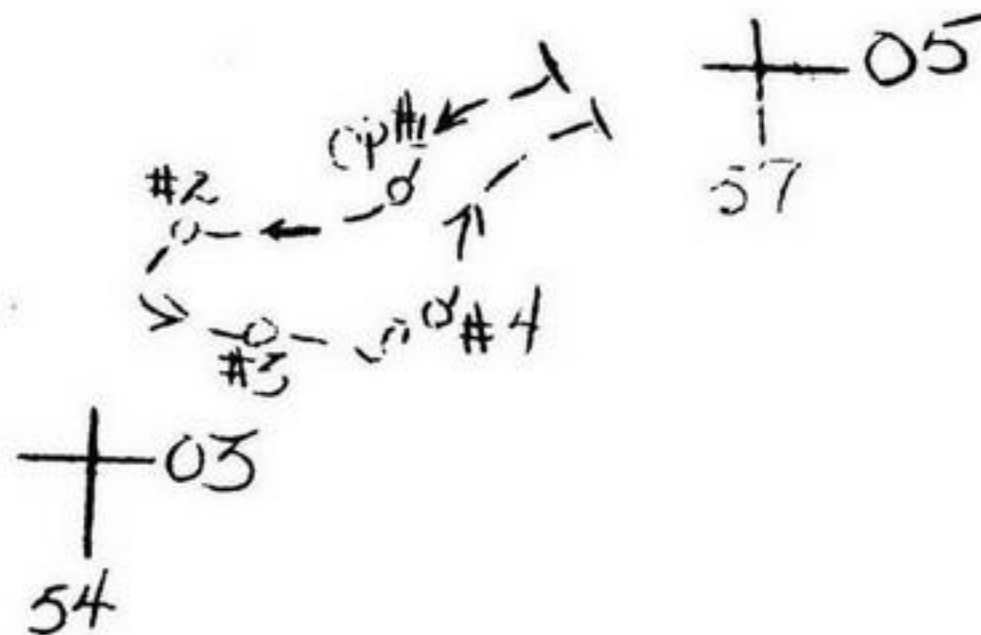 05
57
CP#1
#2
#4
#3
03
54